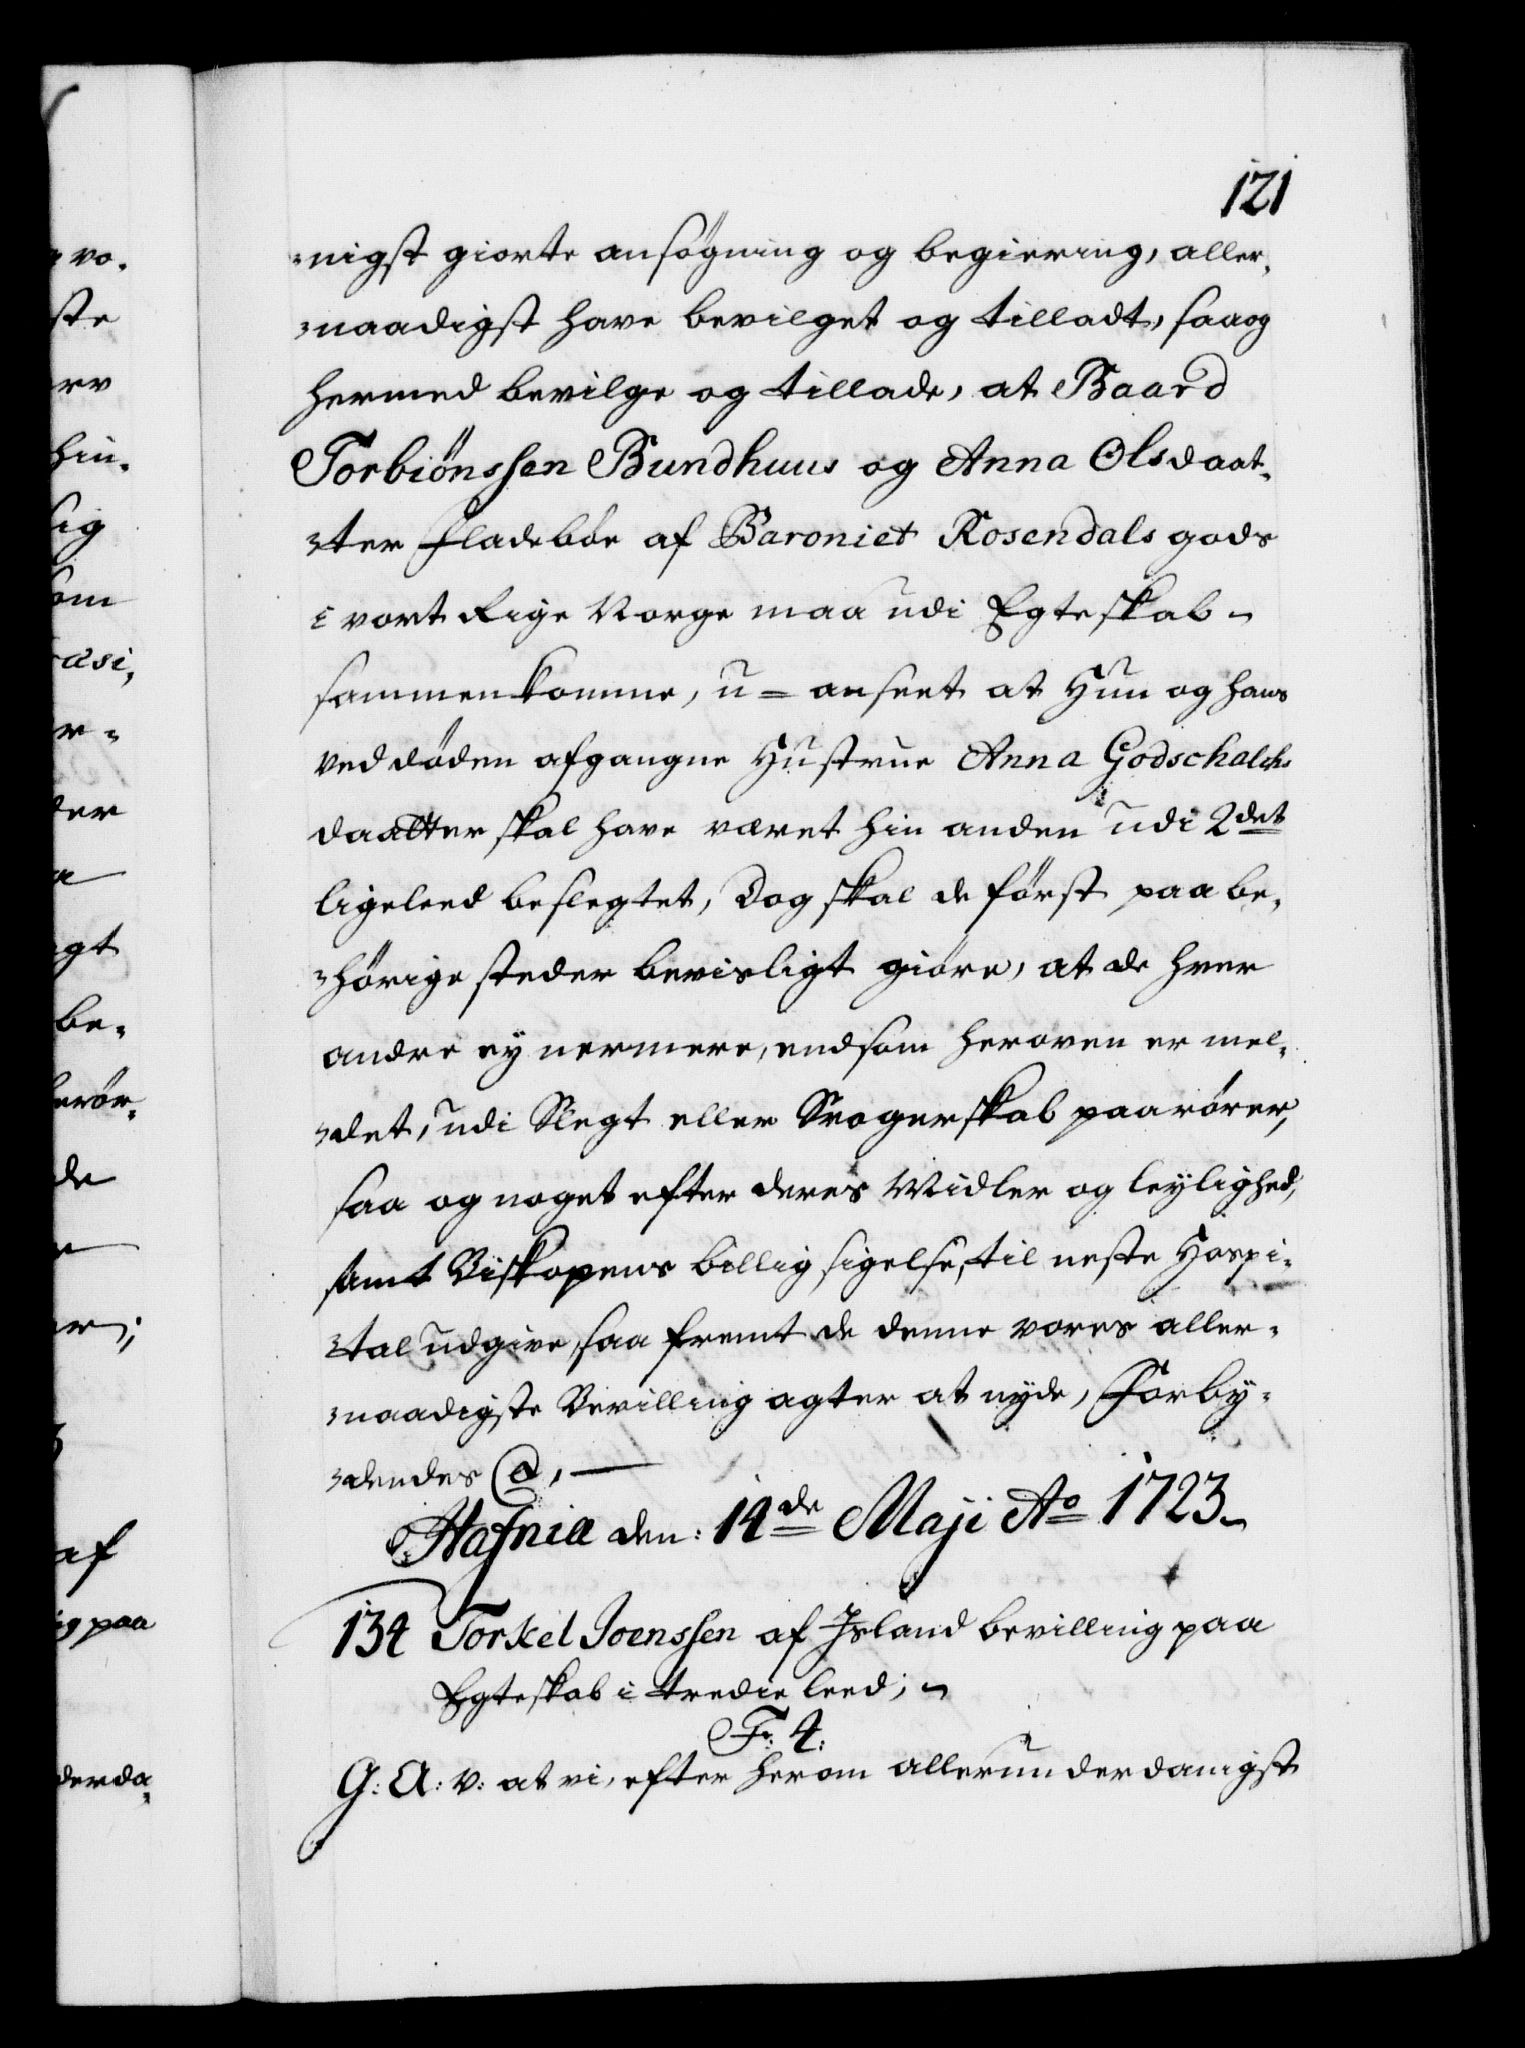 121
-nigst giorte ansögning og begiering, aller-
-naadigst have bevilget og tilladt, saa og
hermed bevilge og tillade, at Baard
Torbiönssen Bundhuus og Anna Olsdaat-
-ter Fladeböe af Baroniet Rosendals gods
i vort Rige Norge maa udi Egteskab
sammenkomme, u-anseet at Hun og hans
ved döden afgangne Hustrue Anna Godschalchs
daatter skal have været hin anden udi 2det
ligeleed beslegtet, Dog skal de först paa be-
-hörige steder bevisligt giöre, at de hver
andre ey nermere, end som heroven er mel-
-det, udi Slegt eller Svogerskab paarörer,
saa og noget efter deres Midler og leylighed,
samt Biskopens billig sigelse, til neste Hospi-
-tal udgive, saa fremt de denne vores aller-
-naadigste Bevilling agter at nyde, Forby-
-dendes @,
Hafniæ den: 14de Maji Ao 1723
134 Torkel Joenssen af Island bevilling paa
Egteskab i tredie leed;
Fr: 4:
G: A: v: at vi, efter herom allerunderdanigst
vo.
ste
hin.
om
be-
de
af
paa
derda-